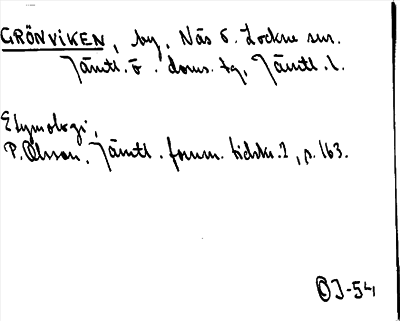 GRÖNVIKEN, by, Näs o. Lockne snr.
Jämtl. ö. doms. tg, Jämtl. l.
Etymologi,
P. Olsson, Jämtl. fornm. tidskr. 2, p. 163.
OJ-54